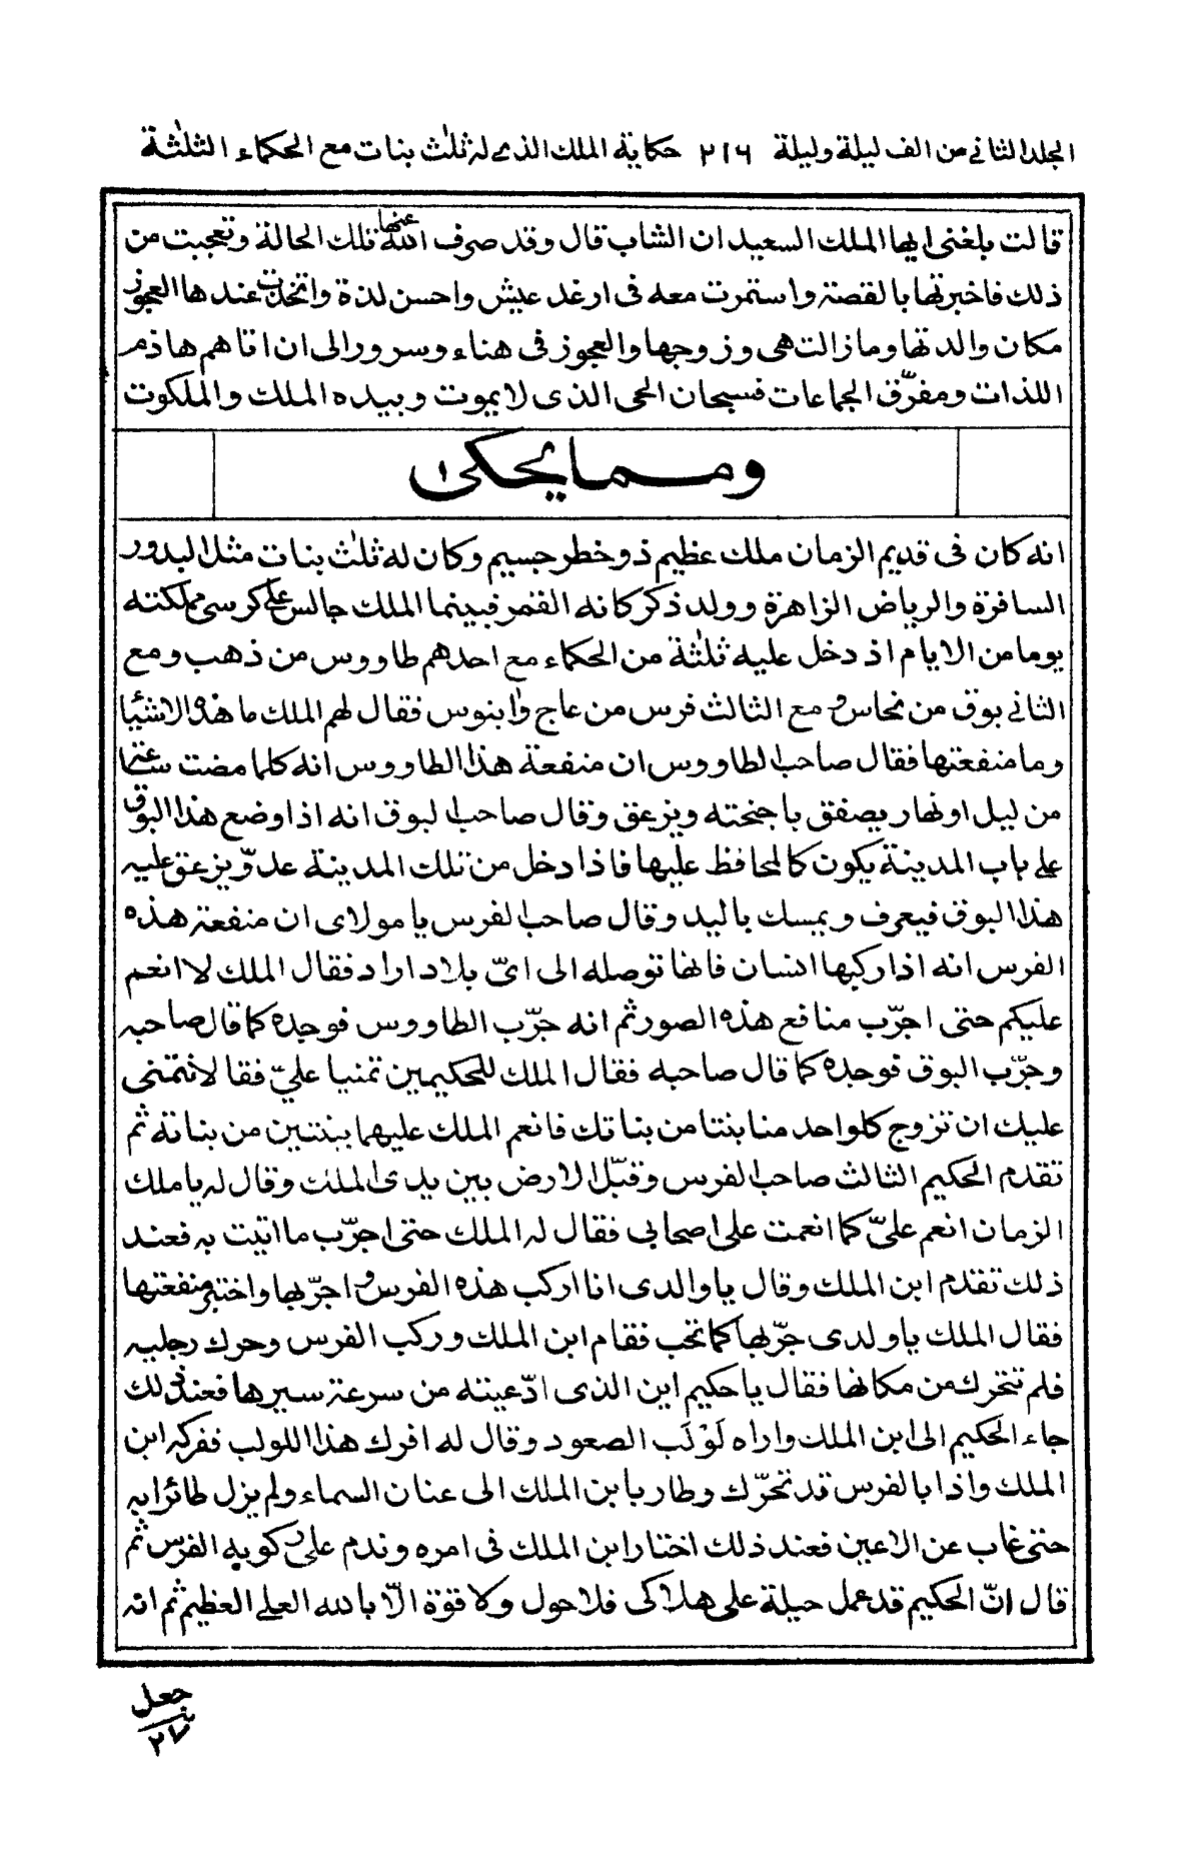 المجلد الثاني من الف ليلة وليلة ٢١٦ حكاية الملك الذي له ثلٰث بنات مع الحكماء الثلٰثة
قالت بلغنى ايها الملك السعيد ان الشاب قال وقد صرف الله عنها تلك الحالة وتعجبت من
ذلك فاخبرتها بالقصة واستمرت معه فى ارغد عيش واحسن لذة واتخذت عندها العجوز
مكان والدتها وما زالت هى وزوجها والعجوز فى هناء وسرور الى ان اتاهم هاذم
اللذات ومفرّق الجماعات فسبحان الحى الذى لا يموت وبيده الملك والملكوت
ومما يحكى
انه كان فى قديم الزمان ملك عظيم ذو خطر جسيم وكان له ثلٰث بنات مثل البدور
السافرة والرياض الزاهرة وولد ذكر كانه القمر فبينما الملك جالس على كرسى مملكته
يوما من الايام اذ دخل عليه ثلٰثة من الحكماء مع احدهم طاووس من ذهب ومع
الثانى بوق من نحاس و مع الثالث فرس من عاج وٰابنوس فقال لهم الملك ما هذه الاشئا
وما منفعتها فقال صاحب الطاووس ان منفعة هذا الطاووس انه كلما مضت ساعة
من ليل او نهار يصفق باجنحته ويزعق وقال صاحب البوق انه اذا وضع هذا البوق
على باب المدينة يكون كالمحافظ عليها فاذا دخل من تلك المدينة عدوّ يزعق عليه
هذا البوق فيعرف ويمسك باليد وقال صاحب الفرس يا مولاى ان منفعة هذه
الفرس انه اذا ركبها انسان فانها توصله الى اىّ بلاد اراد فقال الملك لا انعم
عليكم حتى اجرّب منافع هذه الصور ثم انه جرّب الطاووس فوجده كما قال صاحبه
وجرّب البوق فوجده كما قال صاحبه فقال الملك للحكيمين تمنيا علىّ فقالا نتمنى
عليك ان تزوج كلواحد منا بنتا من بناتك فانعم الملك عليهما ببنتين من بناتة ثم
تقدم الحكيم الثالث صاحب الفرس وقبّل الارض بين يدى الملك وقال له يا ملك
الزمان انعم علىّ كما انعمت على اصحابى فقال له الملك حتى اجرّب ما اتيت به فعند
ذلك تقدم ابن الملك وقال يا والدى انا اركب هذه الفرس و اجرّبها واختبر منفعتها
فقال الملك يا ولدى جرّبها كما تحب فقام ابن الملك وركب الفرس وحرك رجليه
فلم تتحرك من مكانها فقال يا حكيم اين الذى ادّعيته من سرعة سيرها فعند ذلك
جاء الحكيم الى ابن الملك واراه لَوْلَب الصعود وقال له افرك هذا اللولب ففركه ابن
الملك واذا بالفرس قد تحرّك وطار بابن الملك الى عنان السماء ولم يزل طائرا به
حتى غاب عن الاعين فعند ذلك احتار ابن الملك فى امره وندم على ركوبه الفرس ثم
قال انّ الحكيم قد عمل حيلة على هلاكى فلا حول ولا قوة الّا بالله العلى العظيم ثم انه
جعل
٢٧